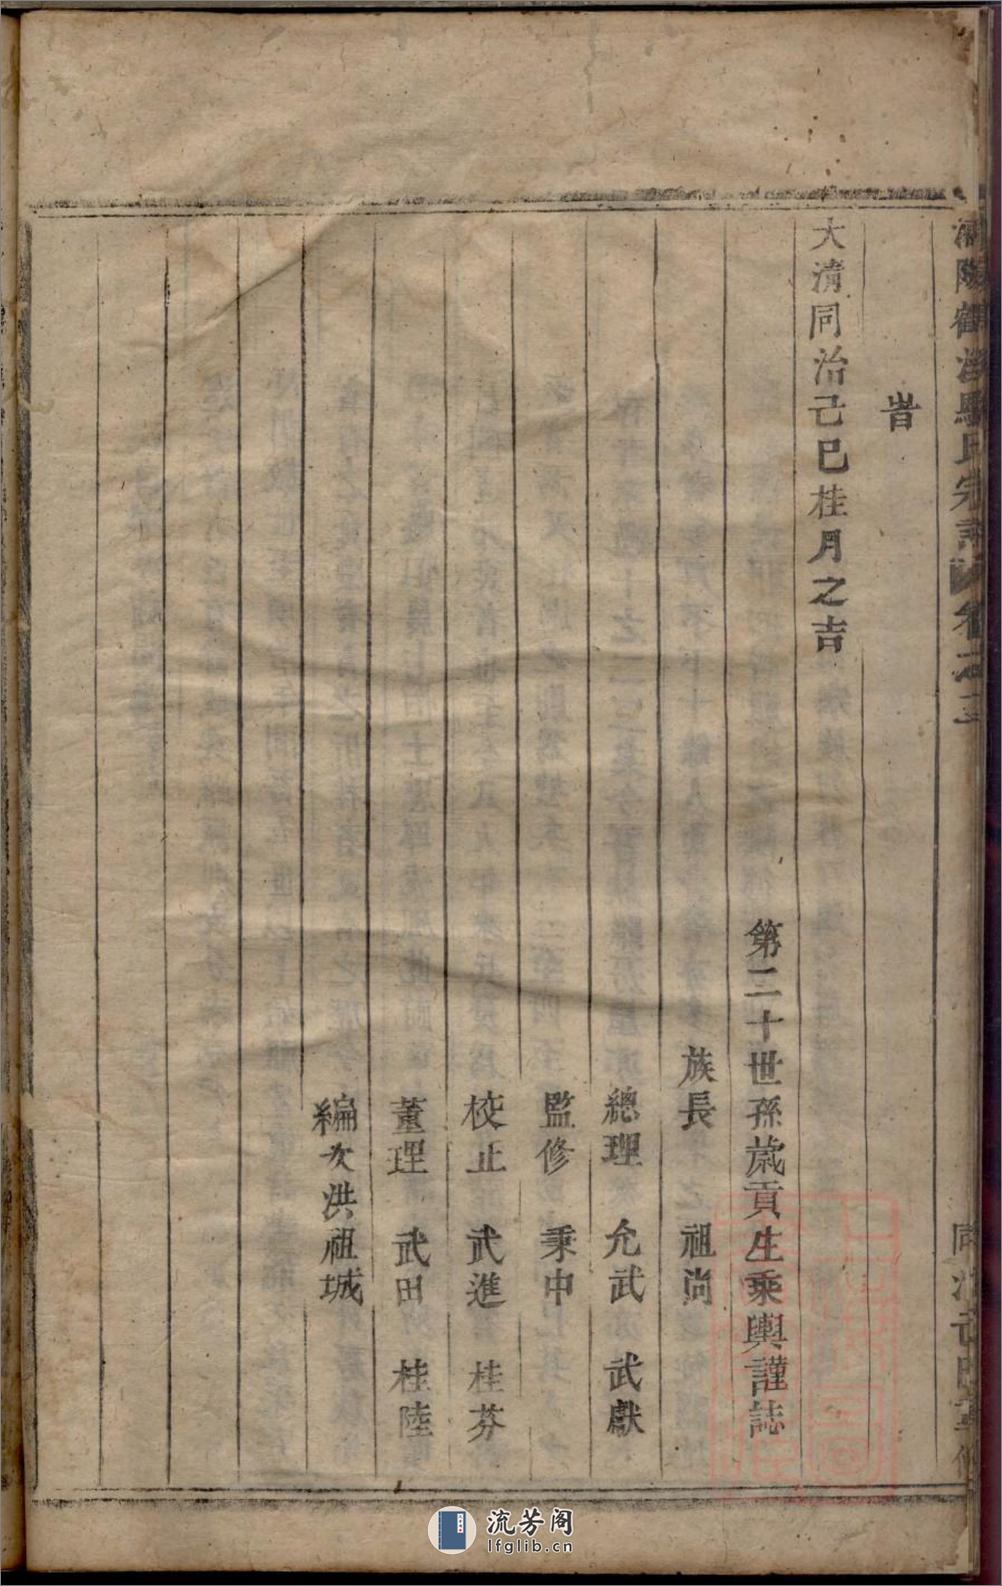 旹
大清同治己巳桂月之吉
第二十世孫歲貢生乘輿謹誌
族長 祖尚
總理 允武 武獻
監修 秉中
校正 武進 桂芬
董理 武田 桂陸
編次洪祖城
流芳阁
lfglib.cn